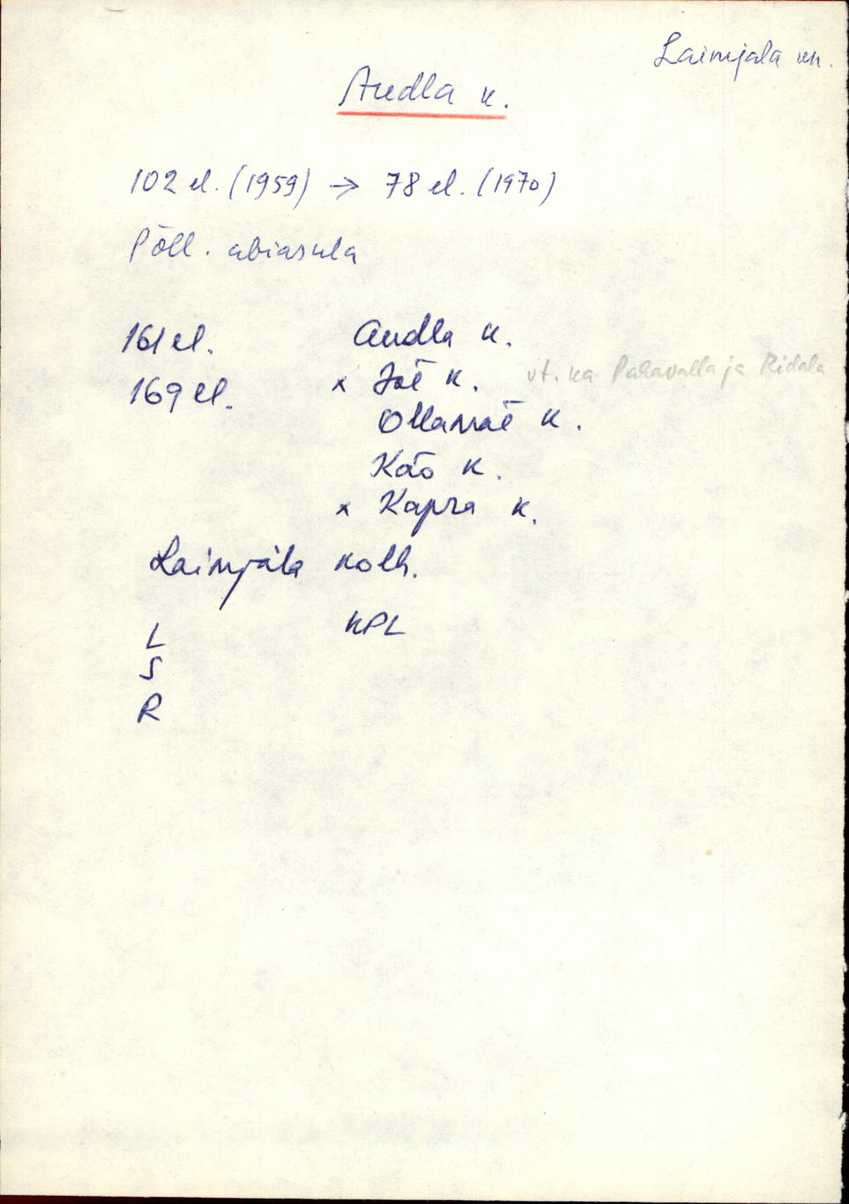 Laimjala kn.
Audla k.
102 el. (1959) → 78 el. (1970)
Põll. abiasula
161 el. Audla k.
169 el. x Jõe k. vt. ka Pahavalla ja Ridala
Ollamäe k.
Käo k.
x Kapra k.
Laimjala kolh.
L KPL
S
R